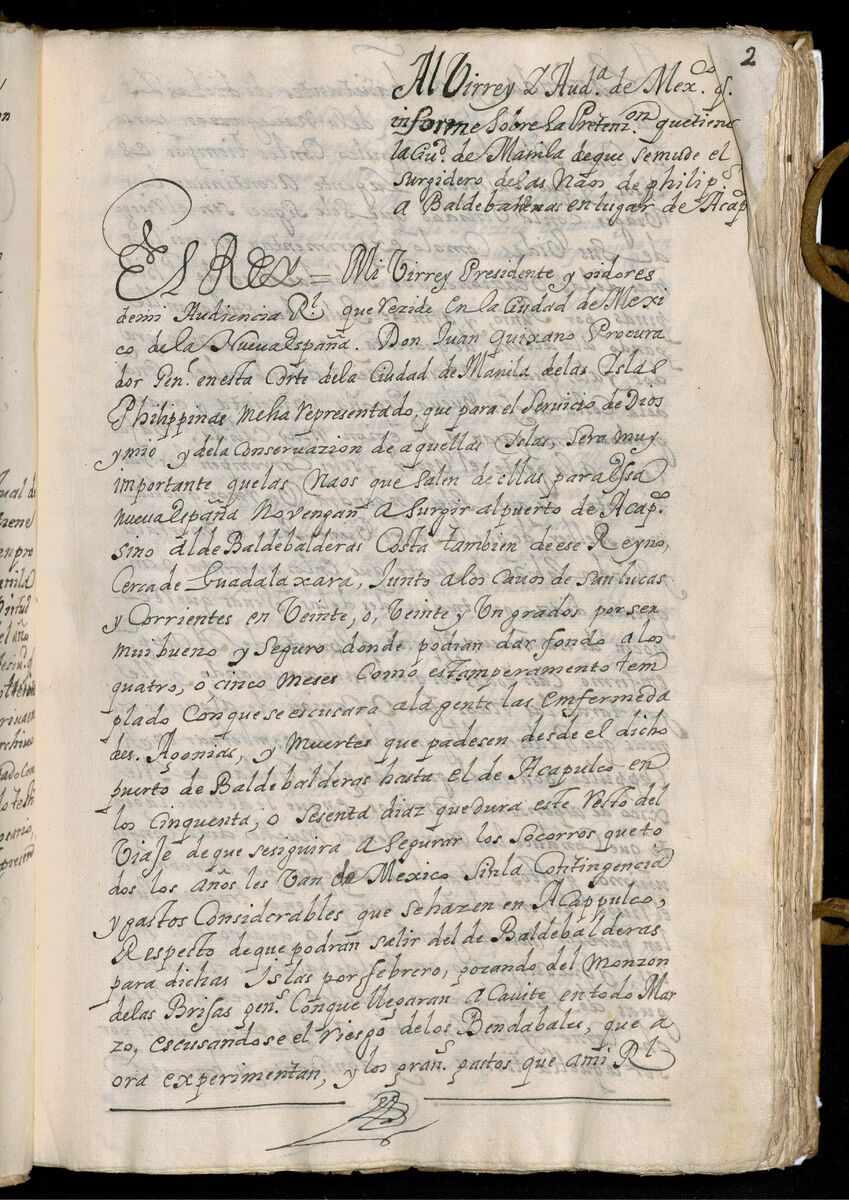 2
Al Virrey Z Aud.ª de Mex.co q.
informe sobre la Preten.on que tiene
la Ciu.d de Manila de que se mude el
surgidero de las Naos de philip.s
a Baldebanderas en lugar de Acap.co
El Rey = Mi Virrey Presidente y oidores
demi Audiencia R.l que rezide en la Ciudad de Mexi
co de la Nueva España. Don Juan Quixano Procura
dor Gen.l en esta Corte dela Ciudad de Manila delas Islas
Philippinas meha representado, que para el servicio de Dios
y mio y dela Conservazion de aquellas Islas, sera muy
importante quelas Naos que salen de ellas para essa
nueva España no vengan a surgir al puerto de Acap.co
sino al de Baldebalderas Costa tambien de ese Reyno,
Cerca de Guadalaxara, Junto a los Cavos de san lucas
y Corrientes en Veinte, o, Veinte y Un grados por ser
mui bueno y seguro donde podian dar fondo a los
quatro, ó cinco meses Como es tamperamento tem
plado Con que se escusara ala gente las emfermeda
des. Agonias, y Muertes que padesen desde el dicho
puerto de Baldebalderas hasta el de Acapulco en
los Cinquenta, o sesenta diaz que dura este resto del
Viaje de que se siguira a segurar los socorros que to
dos los años les Van de Mexico sin la Contingencia
y gastos Considerables que se hazen en Acappulco,
Respecto de que podran salir del de Baldebalderas
para dichas Islas por febrero, gozando del Monzon
delas Brisas gen.s Conque llegaran a Cavite en todo Mar
zo, escusandose el riesgo delos Bendabales, que a
ora experimentan, y los gran.s gastos que ami R.l